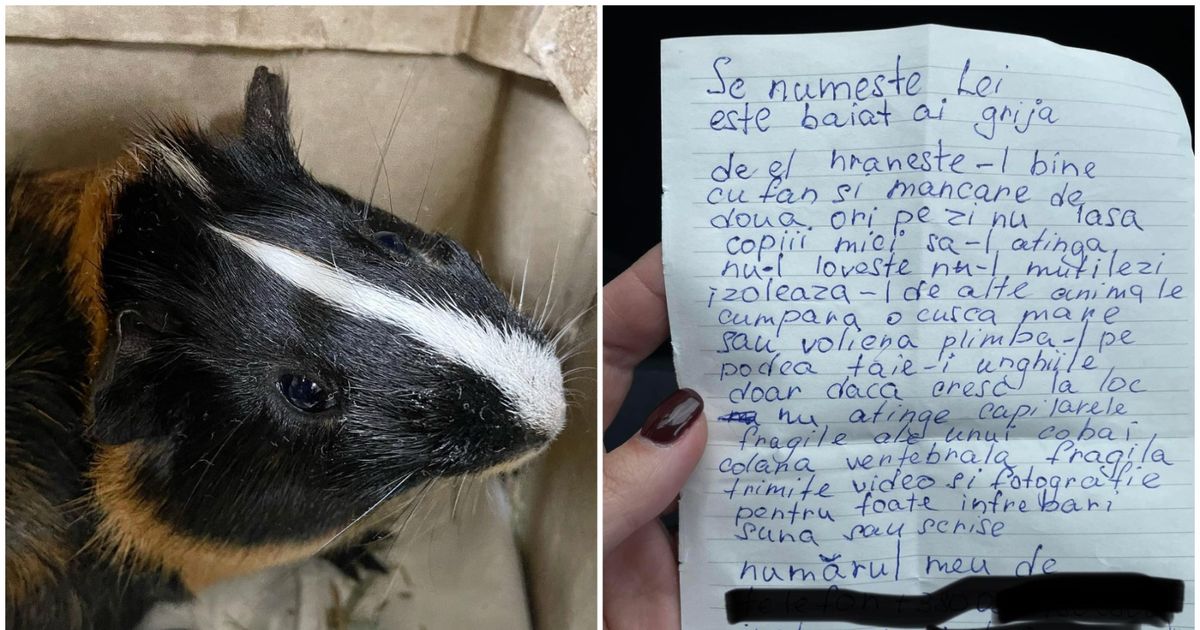 Se numeste Lei
este baiat ai grija
de el hraneste-l bine
cu fan si mancare de
doua ori pe zi nu lasa
copiii mici sa-l atinga
nu-l loveste nu-l mutilezi
izoleaza-l de alte animale
cumpara o cusca mare
sau voliena plimba-l pe
podea taie-i unghiile
doar daca cresc la loc
nu atinge capilarele
fragile ale unui cobai
colana vertebrala fragila
trimite video si fotografie
pentru toate intrebari
suna sau scrise
numărul meu de